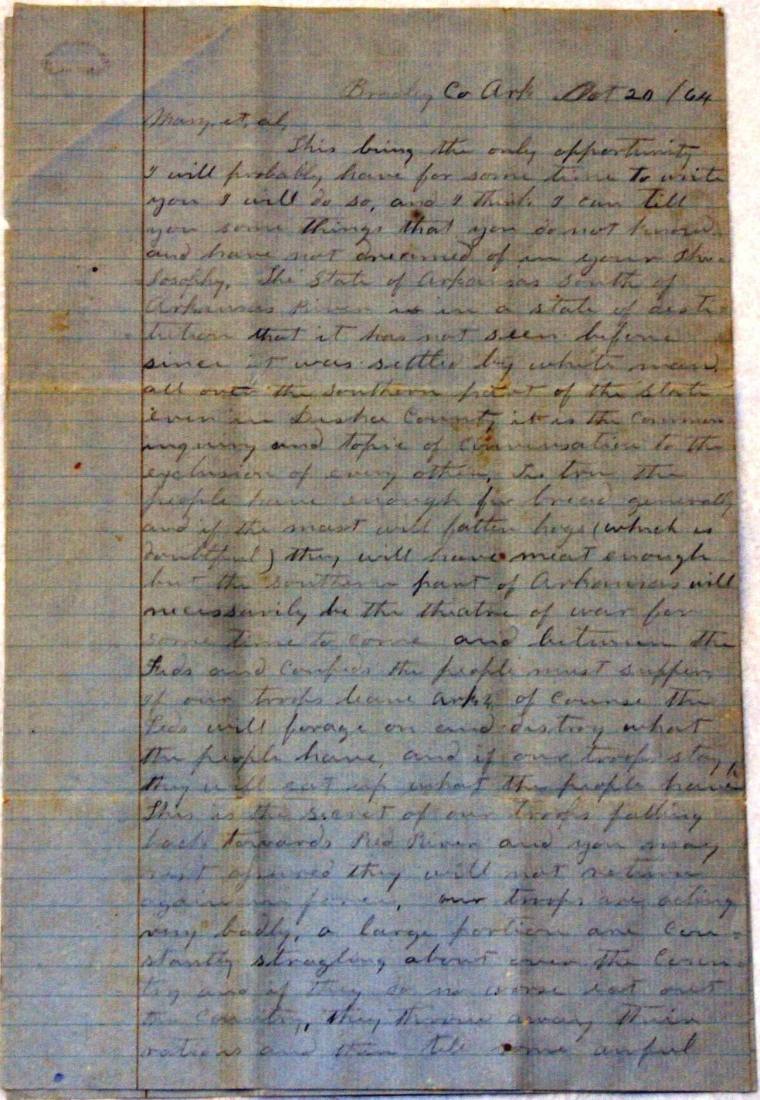 Bradley Co Ark Oct 20 /64
Mary, et, al,
This being the only opportunity
I will probably have for some time to write
you I will do so, and I think I can tell
you some things that you do not know
and have not dreamed of in your Phi-
losophy. The State of Arkansas South of
Arkansas River is in a state of desti-
tution that it has not seen before
since it was settled by white man.
all over the Southern part of the State
even in Desha County it is the common
inquiry and topic of conversation to the
exclusion of every other. Tis true the
people have enough for bread generally
and if the mast will fatten hogs (which is
doubtful) they will have meat enough
but the southern part of Arkansas will
necessarily be the theatre of war for
some time to come and between the
Feds and Confeds the people must suffer,
if our troops leave Arks of course the
Feds will forage on and distroy what
the people have, and if our troops stay,
they will eat up what the people have
This is the secret of our troops falling
back towards Red River and you may
rest assured they will not return
again in force, our troops are acting
very badly, a large portion are con-
stantly stragling about over the Coun-
try and if they do no worse eat out
the Country, they throw away their
rations and then tell some awful